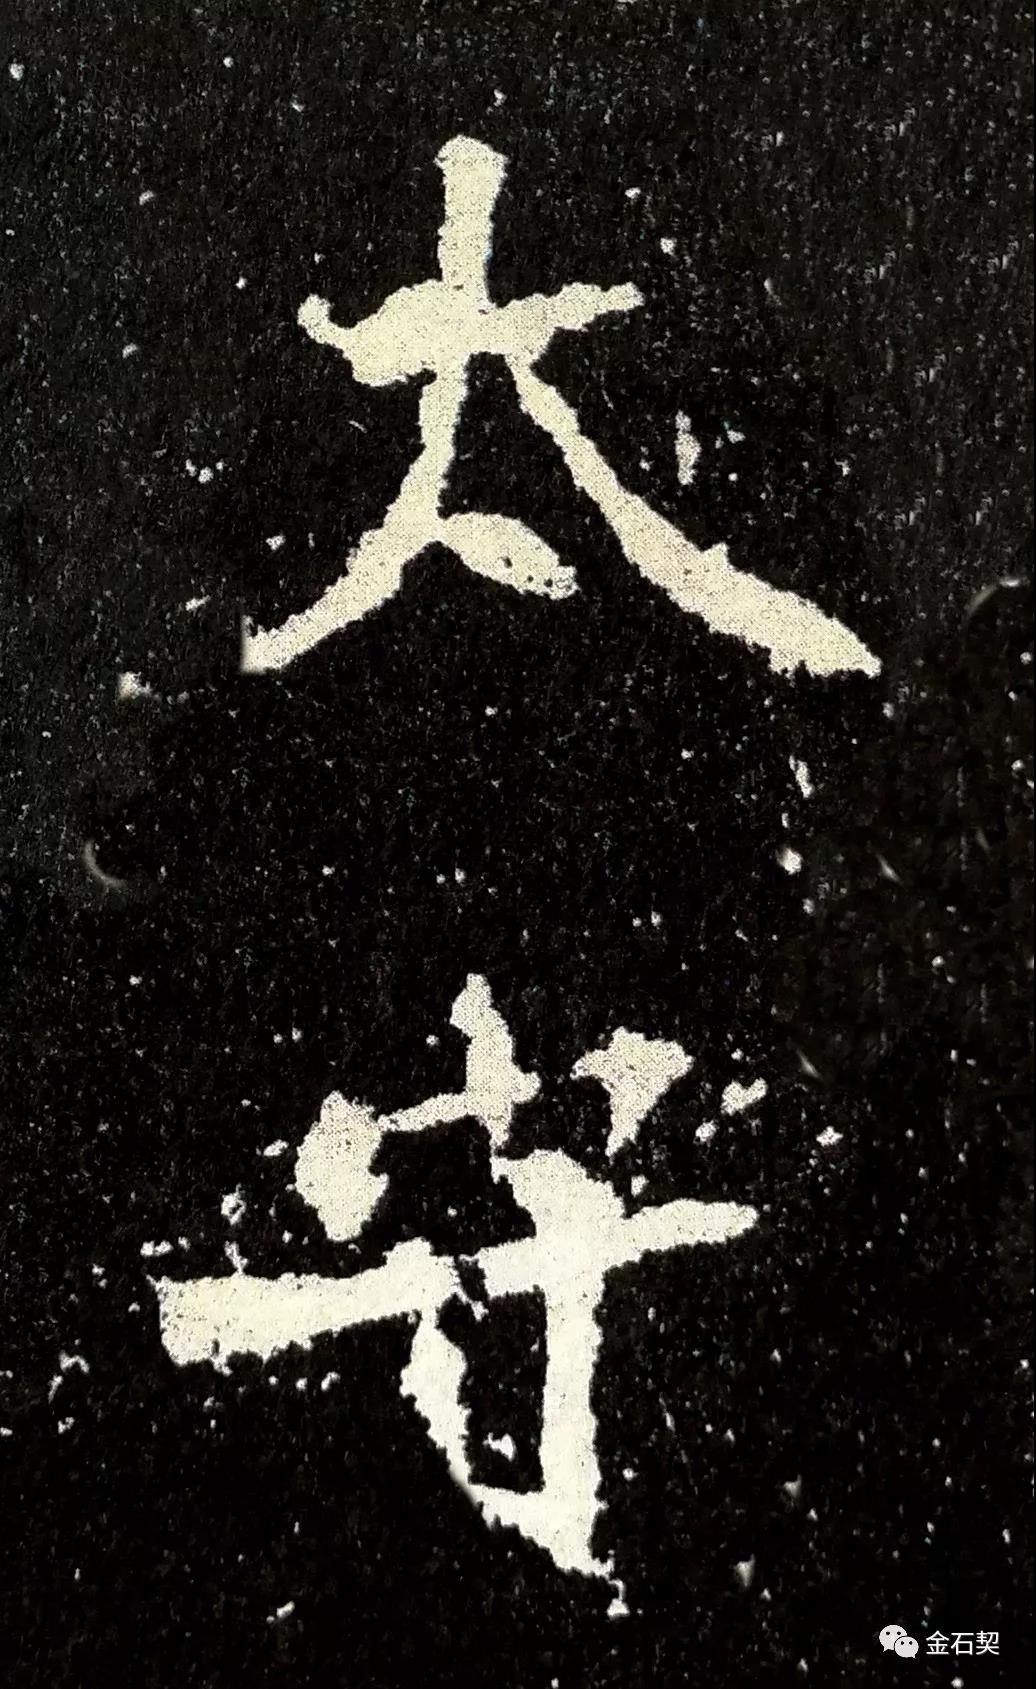 太
守
金石契